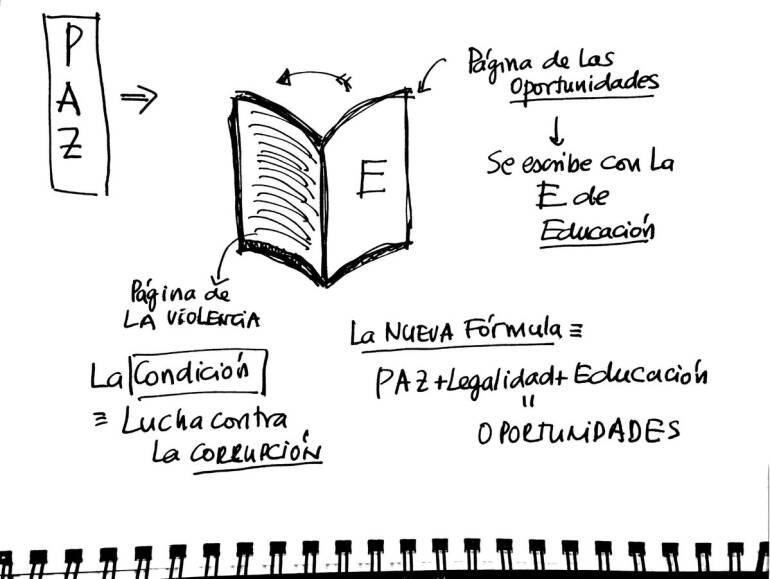 P
A
Z
⇒
Página de Las
Oportunidades
Se escribe con La
E de
Educación
E
Página de
LA VIOLENCIA
La Condición
≡ Lucha contra
La CORRUPCIÓN
La NUEVA Fórmula ≡
PAZ+Legalidad+Educación
"
OPORTUNIDADES